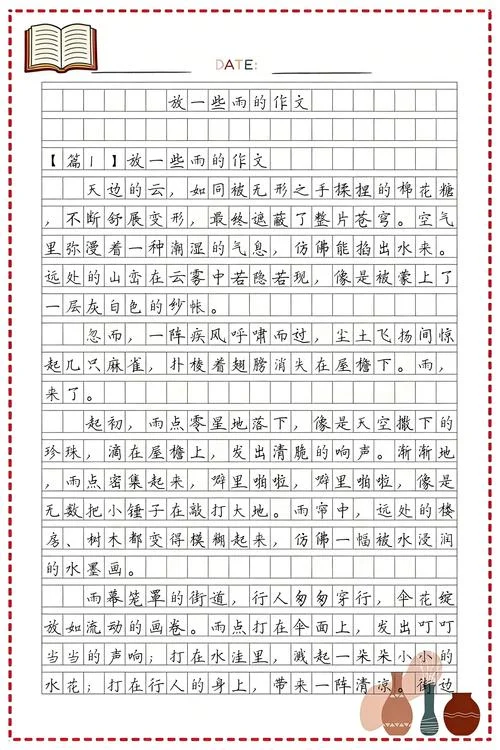 DATE:
放一些雨的作文
【篇1】放一些雨的作文
天边的云，如同被无形之手揉捏的棉花糖
，不断舒展变形，最终遮蔽了整片苍穹。空气
里弥漫着一种潮湿的气息，仿佛能掐出水来。
远处的山峦在云雾中若隐若现，像是被蒙上了
一层灰白色的纱帐。
忽而，一阵疾风呼啸而过，尘土飞扬间惊
起几只麻雀，扑棱着翅膀消失在屋檐下。雨，
来了。
起初，雨点零星地落下，像是天空撒下的
珍珠，滴在屋檐上，发出清脆的响声。渐渐地
，雨点密集起来，噼里啪啦，噼里啪啦，像是
无数把小锤子在敲打大地。雨帘中，远处的楼
房、树木都变得模糊起来，仿佛一幅被水浸润
的水墨画。
雨幕笼罩的街道，行人匆匆穿行，伞花绽
放如流动的画卷。雨点打在伞面上，发出叮叮
当当的声响；打在水洼里，溅起一朵朵小小的
水花；打在行人的身上，带来一阵清凉。街边